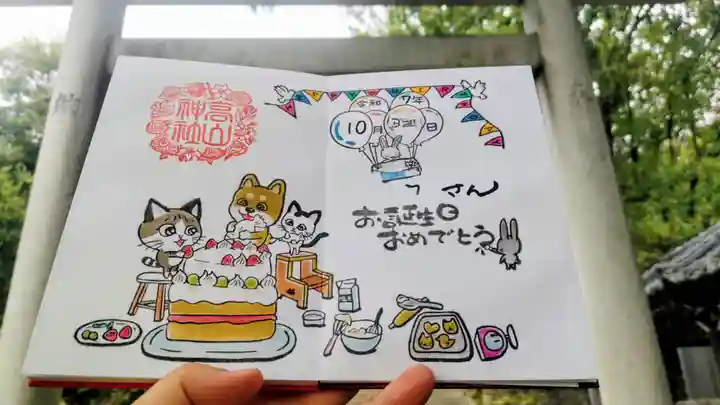 高山
神社
令和7年
10月31日
さん
お誕生日
おめでとう